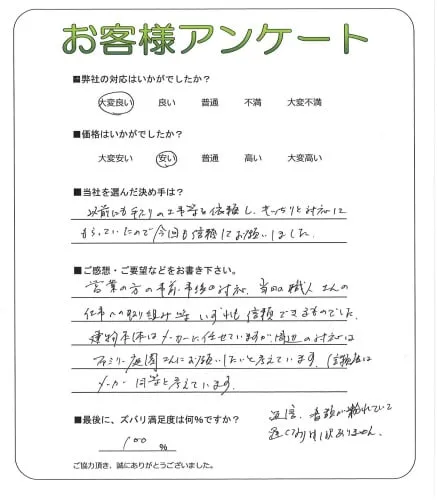 お客様アンケート
■弊社の対応はいかがでしたか？
大変良い 良い 普通 不満 大変不満
■価格はいかがでしたか？
大変安い 安い 普通 高い 大変高い
■当社を選んだ決め手は？
以前にも手スリの工事等を依頼し、きっちりと対応して
もらっていたので今回も信頼してお願いしました。
■ご感想・ご要望などをお書き下さい。
営業の方の事前・事後の対応、当日の職人さんの
仕事への取り組み等いずれも信頼できるものでした。
建物本体はメーカーに任せていますが周辺の対応は
ファミリー庭園さんにお願いしたいと考えています。（信頼度は
メーカー同等と考えています。
■最後に、ズバリ満足度は何%ですか？
100 %
返信、書類が紛れていて
遅くなり申し訳ありません。
ご協力頂き、誠にありがとうございました。